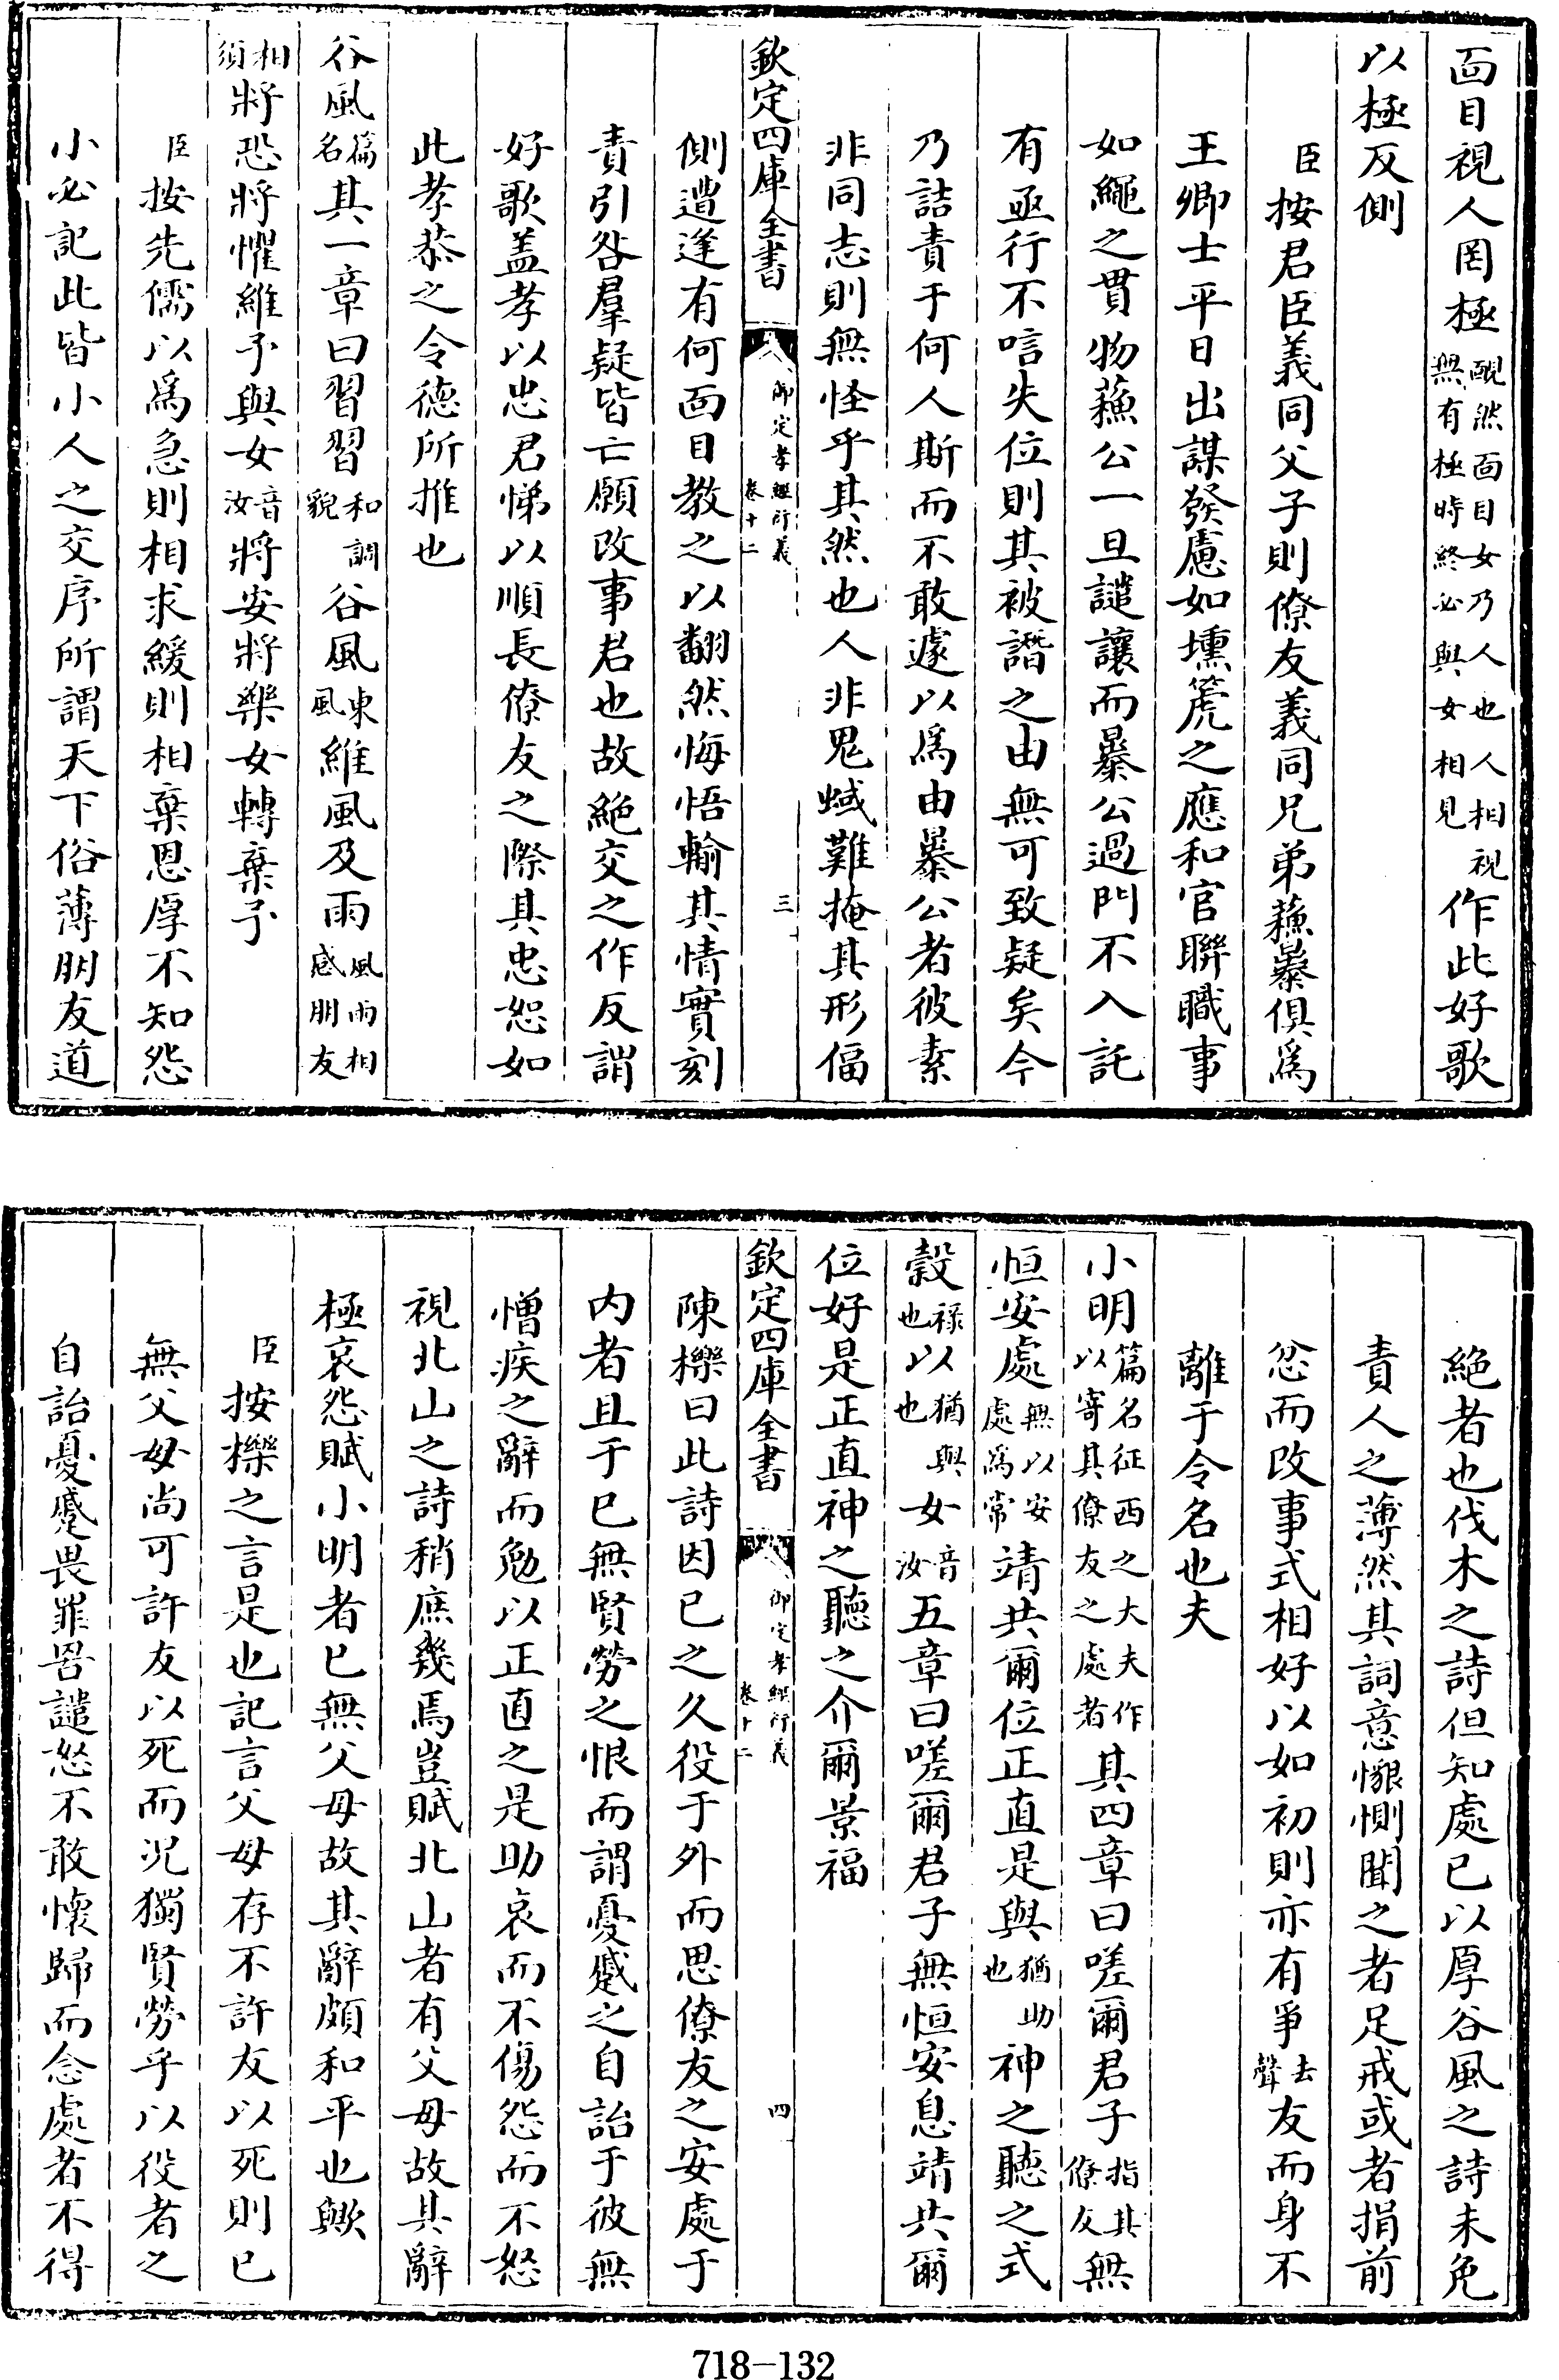 面目視人罔極靦然面目女乃人也人相視無有極時終必與女相見作此好歌
以極反側
臣按君臣義同父子則僚友義同兄弟蘓暴俱為
王卿士平日出謀發慮如壎篪之應和官聯職事
如繩之貫物蘓公一旦譴讓而暴公過門不入託
有亟行不唁失位則其被譖之由無可致疑矣今
乃詰責于何人斯而不敢遽以為由暴公者彼素
非同志則無怪乎其然也人非鬼蜮難掩其形偪
欽定四庫全書
御定孝經衍義
卷十二
三
側遭逢有何面目教之以翻然悔悟輸其情實刻
責引咎羣疑皆亡願改事君也故絶交之作反謂
好歌盖孝以忠君悌以順長僚友之際其忠恕如
此孝恭之令德所推也
谷風篇名其一章曰習習和調貌谷風東風維風及雨風雨相感朋友
相須將恐將懼維予與女音汝將安將樂女轉棄予
臣按先儒以為急則相求緩則相棄恩厚不知怨
小必記此皆小人之交序所謂天下俗薄朋友道
絶者也伐木之詩但知處已以厚谷風之詩未免
責人之薄然其詞意懇惻聞之者足戒或者捐前
忿而改事式相好以如初則亦有爭去聲友而身不
離于令名也夫
小明篇名征西之大夫作以寄其僚友之處者其四章曰嗟爾君子指其僚友無
恒安處無以安處為常靖共爾位正直是與猶助也神之聽之式
穀祿也以猶與也女音汝五章曰嗟爾君子無恒安息靖共爾
位好是正直神之聽之介爾景福
欽定四庫全書
御定孝經衍義
卷十二
四
陳櫟曰此詩因已之久役于外而思僚友之安處于
内者且于已無賢勞之恨而謂憂蹙之自詒于彼無
憎疾之辭而勉以正直之是助哀而不傷怨而不怒
視北山之詩稍庶幾焉豈賦北山者有父母故其辭
極哀怨賦小明者已無父母故其辭頗和平也歟
臣按櫟之言是也記言父母存不許友以死則已
無父母尚可許友以死而况獨賢勞乎以役者之
自詒憂蹙畏罪罟譴怒不敢懷歸而念處者不得